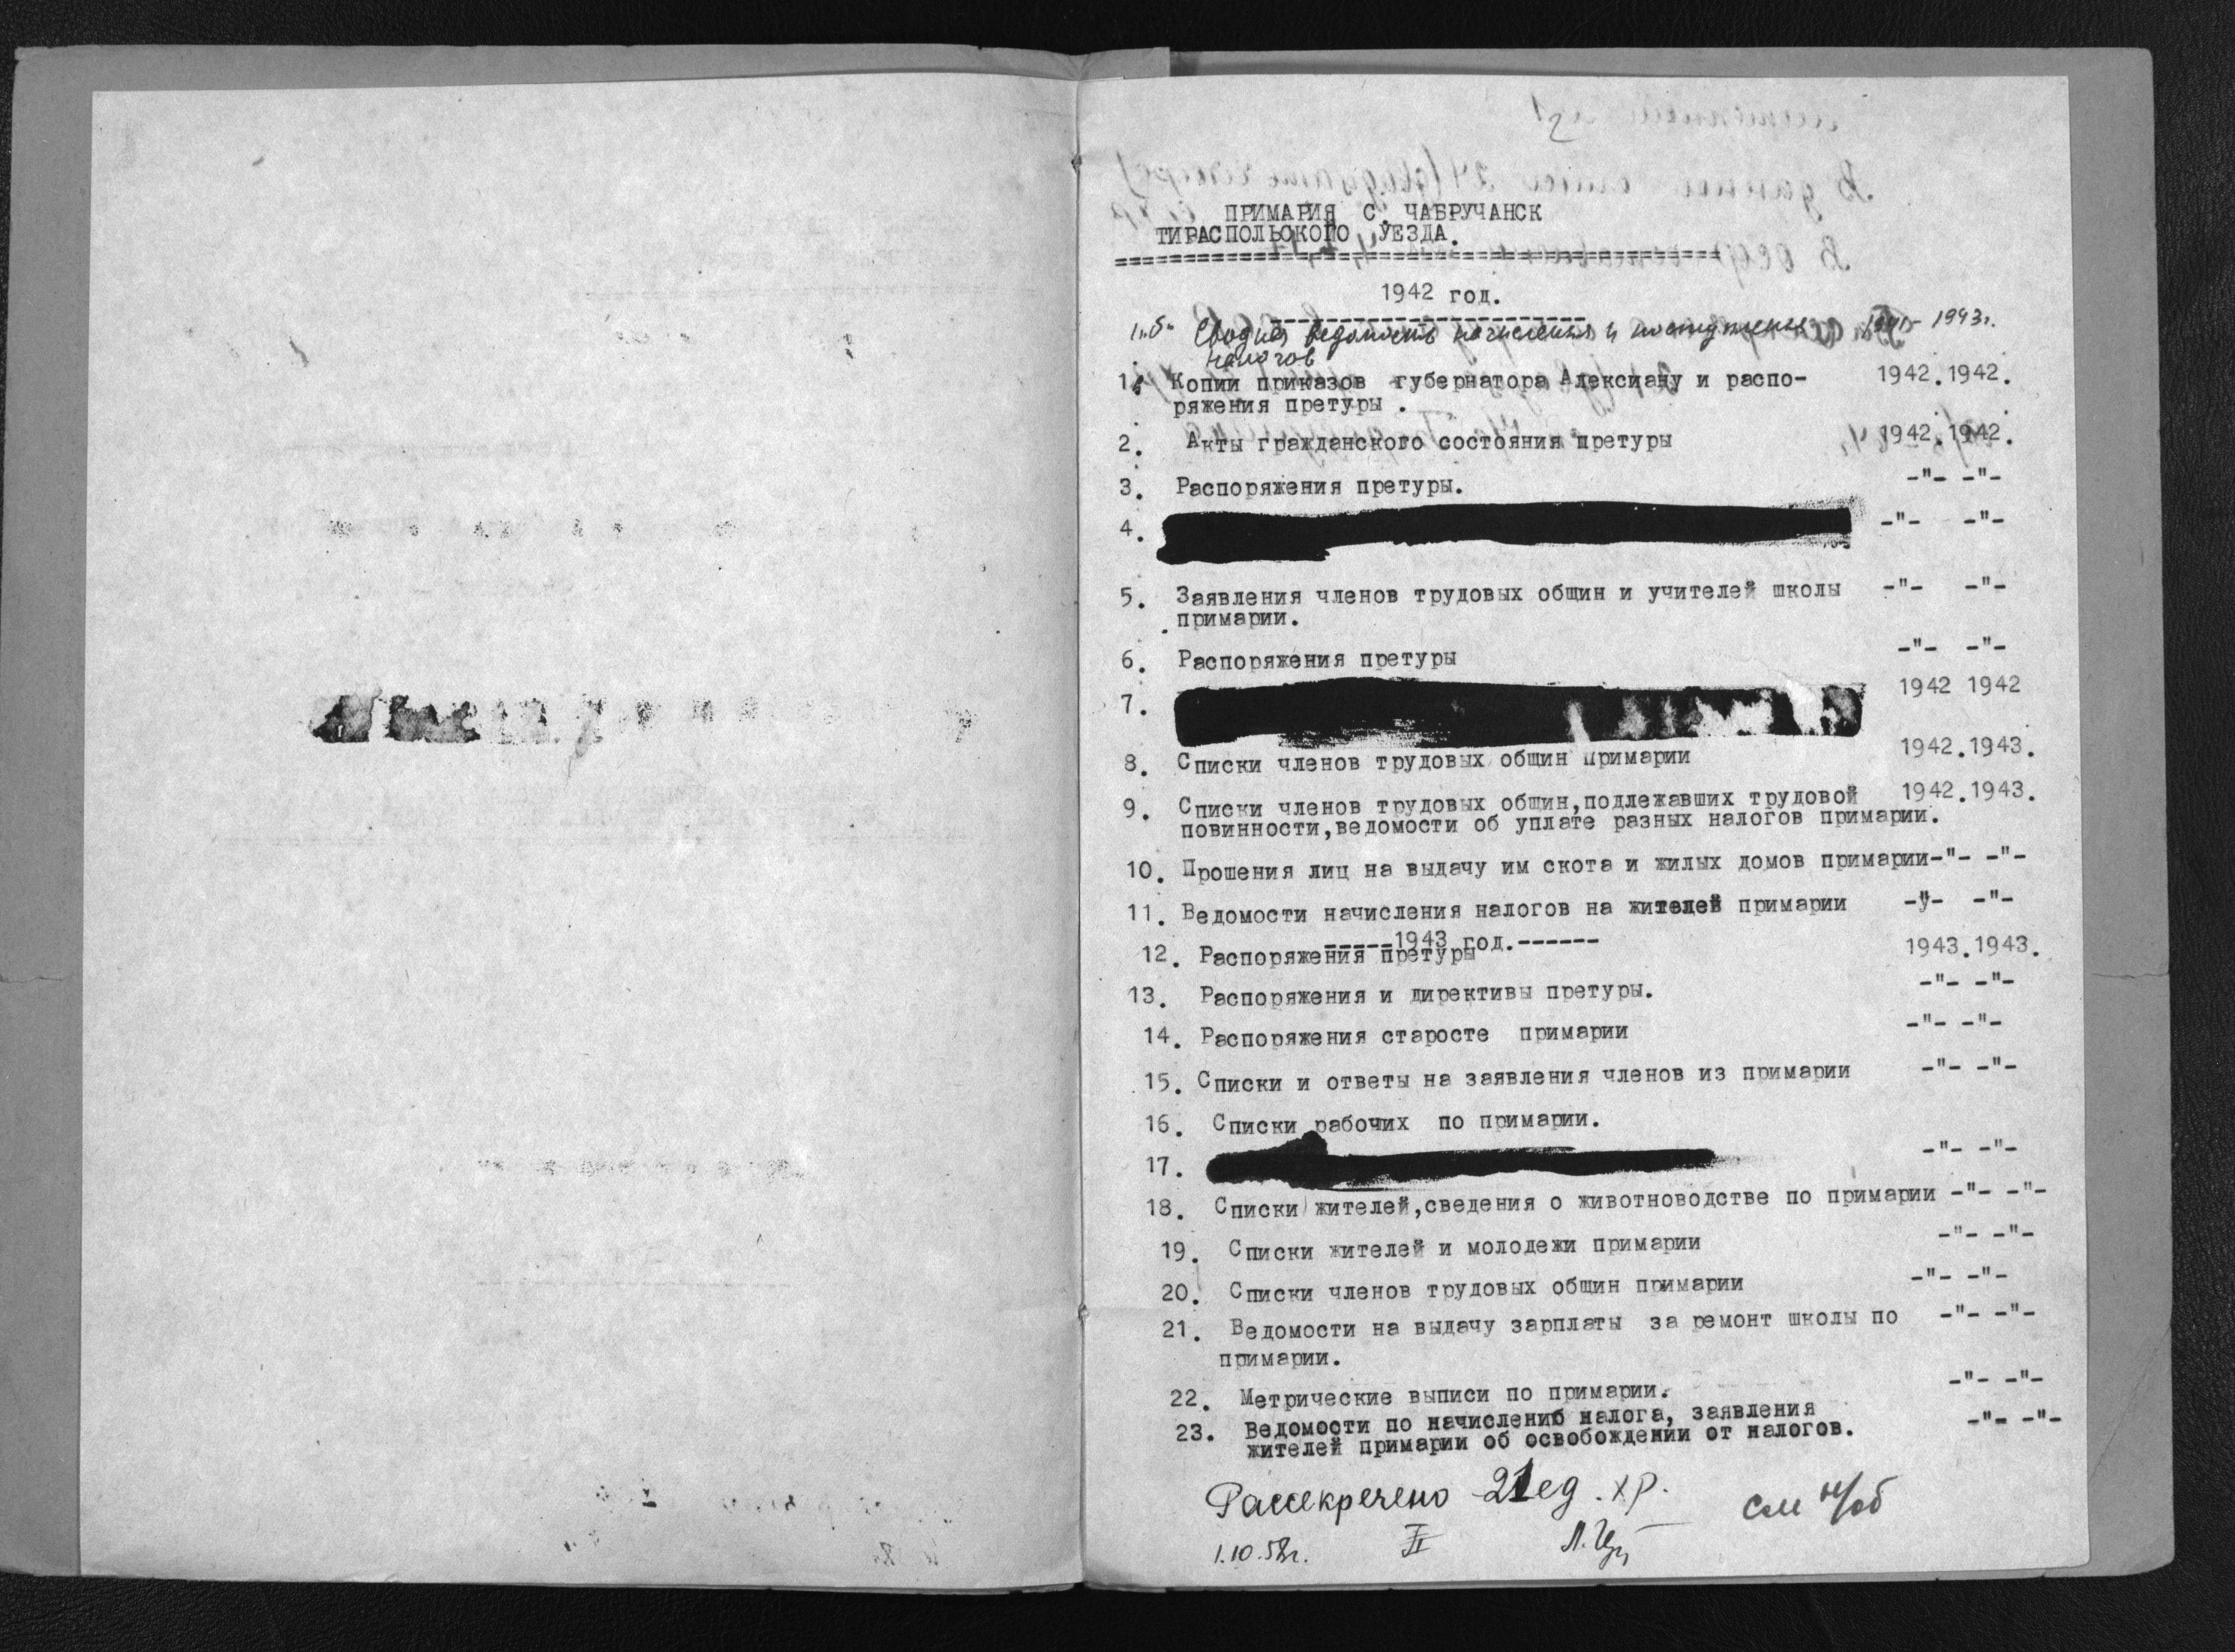 ПРИМАРИЯ С. ЧАБРУЧАНСК
ТИРАСПОЛЬСКОГО УЕЗДА.
1942 год.
1"б" Сводная ведомость начисления и поступления 1941-1943г.
налогов
1. Копии приказов губернатора Алексиану и распо- 1942.1942.
ряжения претуры .
2. Акты гражданского состояния претуры 1942.1942.
3. Распоряжения претуры. -"- -"-
4. -"- -"-
5. Заявления членов трудовых общин и учителей школы -"- -"-
примарии.
6. Распоряжения претуры -"- -"-
7. 1942 1942
8. Списки членов трудовых общин примарии 1942.1943.
9. Списки членов трудовых общин,подлежавших трудовой 1942.1943.
повинности,ведомости об уплате разных налогов примарии.
10. Прошения лиц на выдачу им скота и жилых домов примарии-"- -"-
11. Ведомости начисления налогов на жителей примарии -"- -"-
-----1943 год.------
12. Распоряжения претуры 1943.1943.
13. Распоряжения и директивы претуры. -"- -"-
14. Распоряжения старосте примарии -"- -"-
15. Списки и ответы на заявления членов из примарии -"- -"-
16. Списки рабочих по примарии.
17. -"- -"-
18. Списки жителей,сведения о животноводстве по примарии -"- -"-
19. Списки жителей и молодежи примарии -"- -"-
20. Списки членов трудовых общин примарии -"- -"-
21. Ведомости на выдачу зарплаты за ремонт школы по -"- -"-
примарии.
22. Метрические выписи по примарии. -"- -"-
23. Ведомости по начислению налога, заявления -"- -"-
жителей примарии об освобождении от налогов.
Рассекречено 21 ед. хр. см н/об
1.10.58г. II